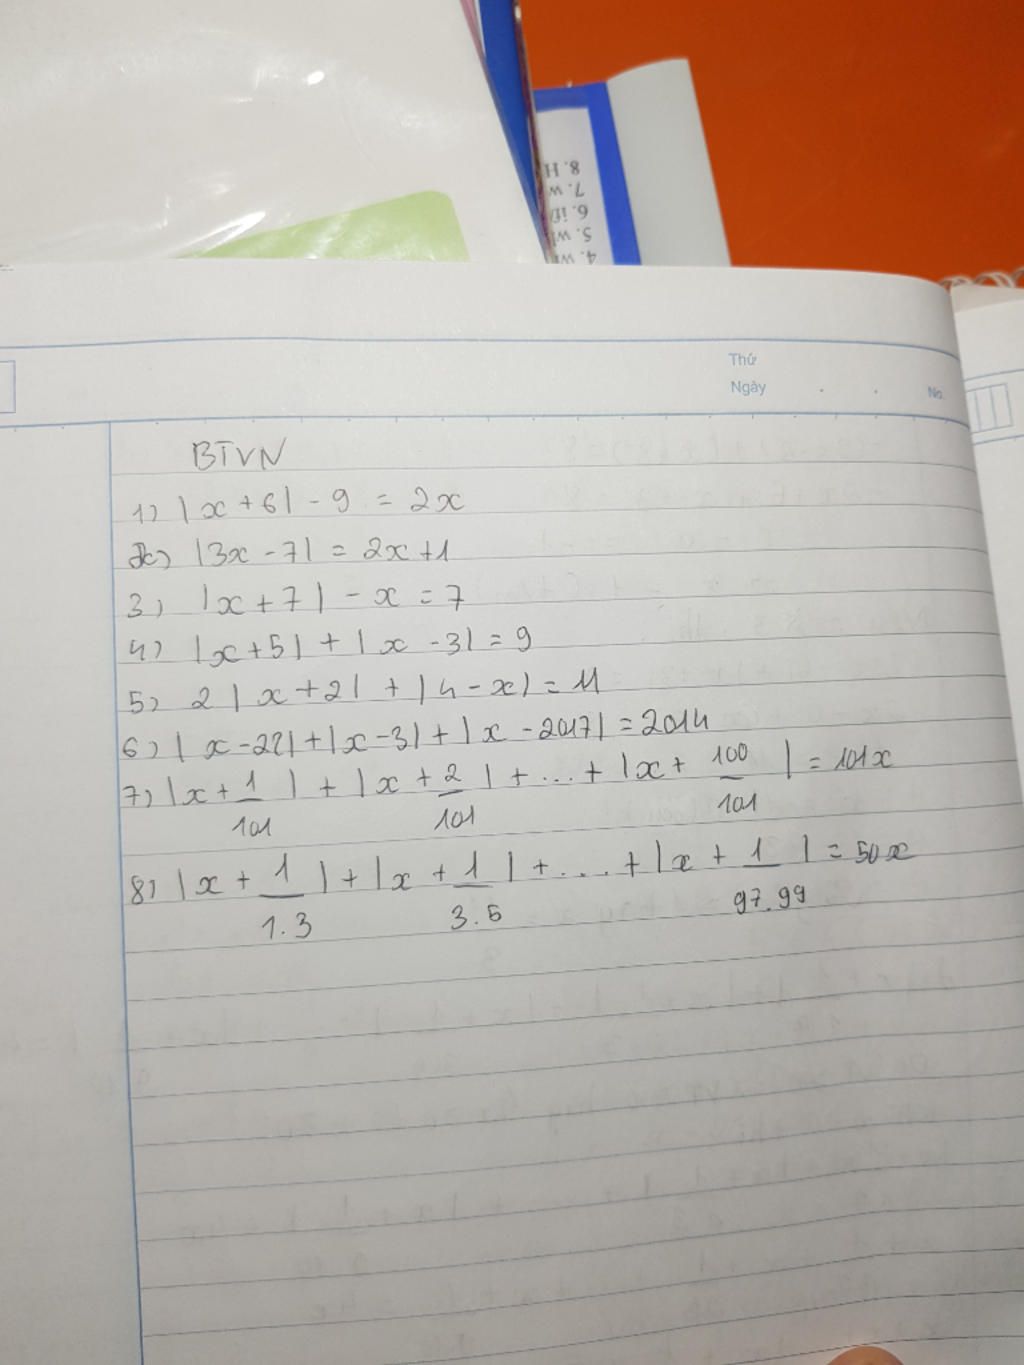 8. H
7. w
6. if
5. w
4. w
Thứ
Ngày . .
No.
BTVN
1) |x+6| - 9 = 2x
2) |3x - 7| = 2x+1
3) |x+7| - x = 7
4) |x+5| + |x - 3| = 9
5) 2|x+2| + |4-x| = 11
6) |x-22|+|x-3|+|x-2017| = 2014
7) |x + 1/101| + |x + 2/101| + ... + |x + 100/101| = 101x
8) |x + 1/1.3| + |x + 1/3.5| + ... + |x + 1/97.99| = 50x